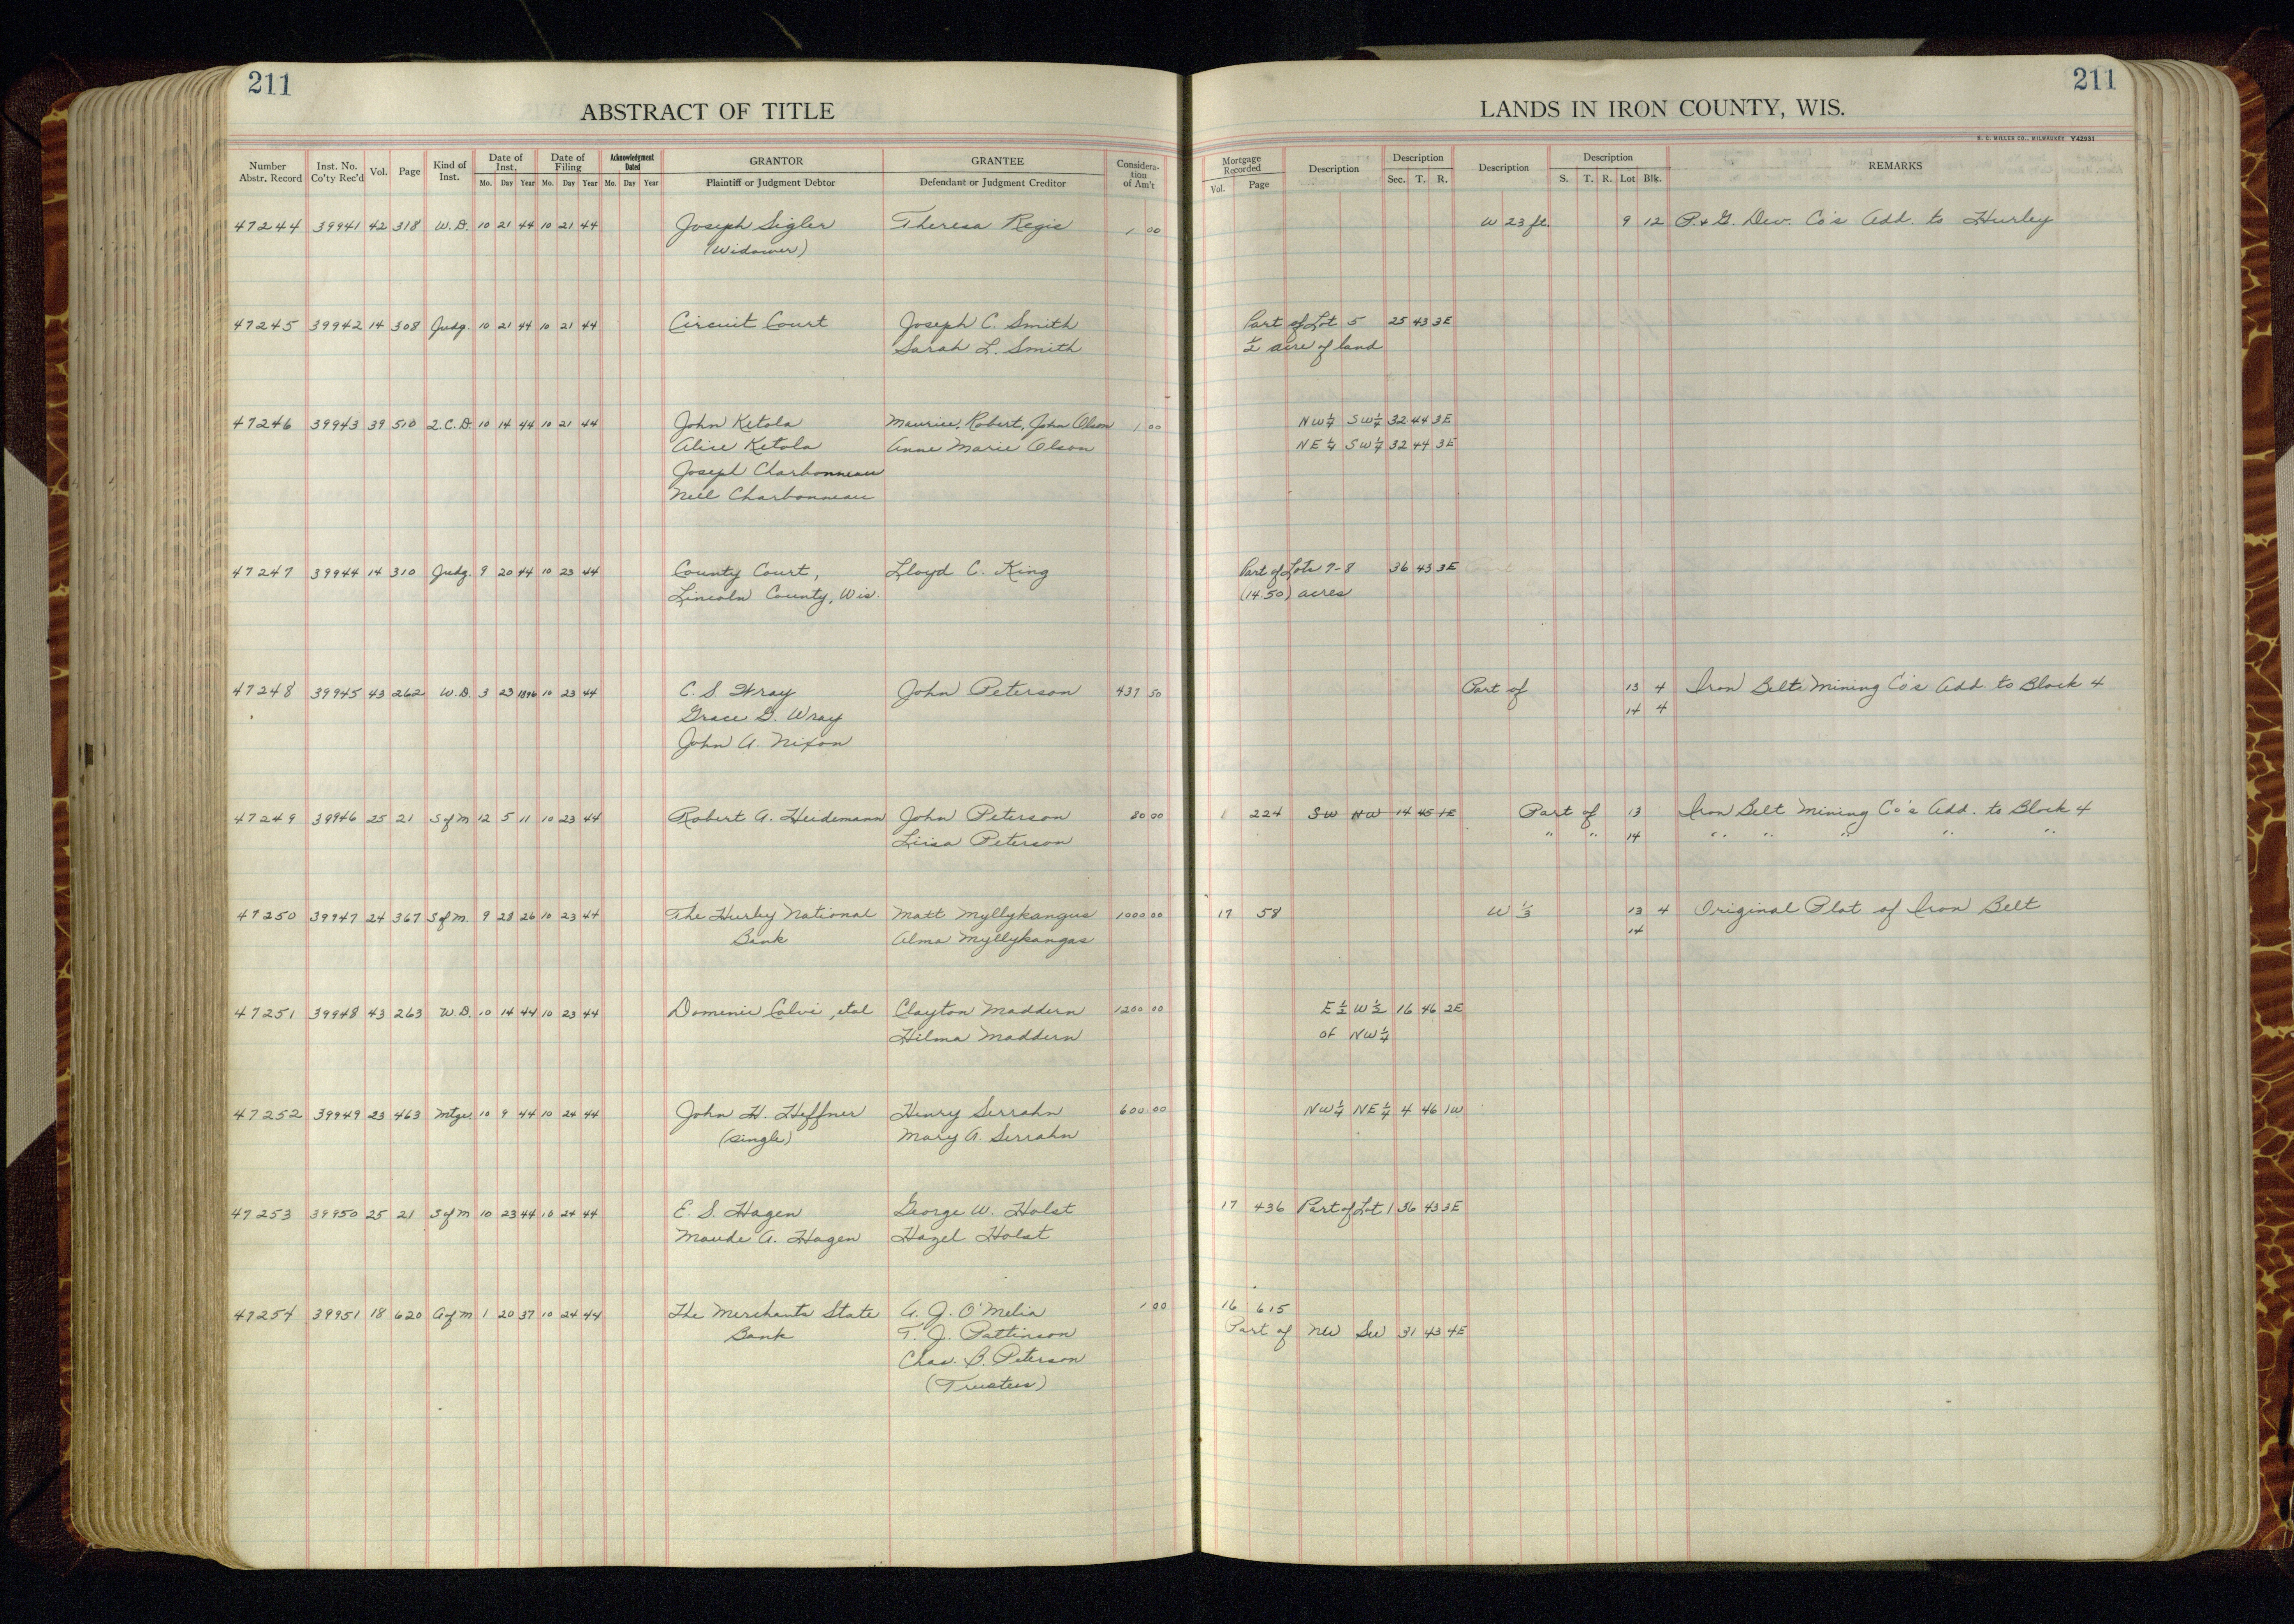 211
211
ABSTRACT OF TITLE
LANDS IN IRON COUNTY, WIS.
H. C. MILLER CO., MILWAUKEE Y42931
Number Abstr. Record Inst. No. Co'ty Rec'd Vol. Page Kind of Inst. Date of Inst, Mo. Day Year Date of Filing Mo. Day Year Acknowledgment Dated Mo. Day Year GRANTOR Plaintiff or Judgment Debtor GRANTEE Defendant or Judgment Creditor Considera-tion of Am't Mortgage Recorded Vol. Page Description Description Sec. T. R. Description Description S. T. R. Lot Blk. REMARKS
47244 39941 42 318 W.D. 10 21 44 10 21 44 Joseph Sigler Theresa Regis 1 00 W 23 ft. 9 12 P. & G. Dev. Co's Add. to Hurley
(Widower)
47245 39942 14 308 Judg. 10 21 44 10 21 44 Circuit Court Joseph C. Smith Part of Lot 5 25 43 3E
Sarah L. Smith 1/2 acre of land
47246 39943 39 510 Q.C.D. 10 14 44 10 21 44 John Ketola Maurice, Robert, John Olson 1 00 NW 1/4 SW 1/4 32 44 3E
Alice Ketola Anne Marie Olson NE 1/4 SW 1/4 32 44 3E
Joseph Charbonneau
Nell Charbonneau
47247 39944 14 310 Judg. 9 20 44 10 23 44 County Court, Lloyd C. King Part of Lots 7-8 36 43 3E
Lincoln County, Wis. (14.50) acres
47248 39945 43 262 W.D. 3 23 1896 10 23 44 C. S. Wray John Peterson 437 50 Part of 13 4 Iron Belt Mining Co's Add. to Block 4
Grace G. Wray 14 4
John A. Nixon
47249 39946 25 21 S of M 12 5 11 10 23 44 Robert A. Heidemann John Peterson 80 00 224 SW NW 14 45 1E Part of 13 Iron Belt Mining Co's Add. to Block 4
Liisa Peterson " " 14 " " " " "
47250 39947 24 367 S of M. 9 28 26 10 23 44 The Hurley National Matt Myllykangus 1000 00 17 58 W 1/3 13 4 Original Plat of Iron Belt
Bank Alma Myllykangas 14
47251 39948 43 263 W.D. 10 14 44 10 23 44 Domenic Calvi, etal Clayton Maddern 1200 00 E 1/2 W 1/2 16 46 2E
Hilma Maddern of NW 1/4
47252 39949 23 463 Mtge. 10 9 44 10 24 44 John H. Heffner Henry Serrahn 600 00 NW 1/4 NE 1/4 4 46 1W
(single) Mary A. Serrahn
47253 39950 25 21 S of M 10 23 44 10 24 44 E. S. Hagen George W. Holst 17 436 Part of Lot 1 36 43 3E
Maude A. Hagen Hazel Holst
47254 39951 18 620 A of M 1 20 37 10 24 44 The Merchants State A. J. O'Melia 1 00 16 615
Bank T. J. Pattinson Part of NW SW 31 43 4E
Chas. B. Peterson
(Trustees)